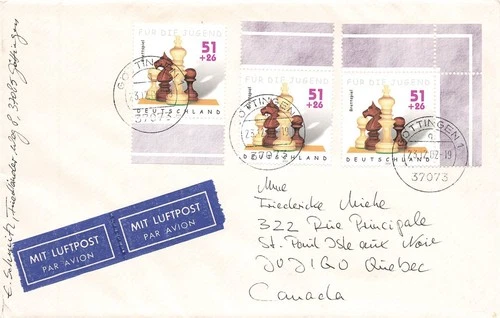 E. Schmitz, Friedländer Weg 8, 37085 Göttingen
FÜR DIE JUGEND
Brettspiel
51
+26
DEUTSCHLAND
FÜR DIE JUGEND
Brettspiel
51
+26
DEUTSCHLAND
FÜR DIE JUGEND
Brettspiel
51
+26
DEUTSCHLAND
GÖTTINGEN 1
37073
GÖTTINGEN 1
37073
GÖTTINGEN 1
37073
MIT LUFTPOST
PAR AVION
MIT LUFTPOST
PAR AVION
Mme
Friedericke Miehe
322 Rue Principale
St. Paul Isle aux Noix
J0J1G0 Quebec
Canada